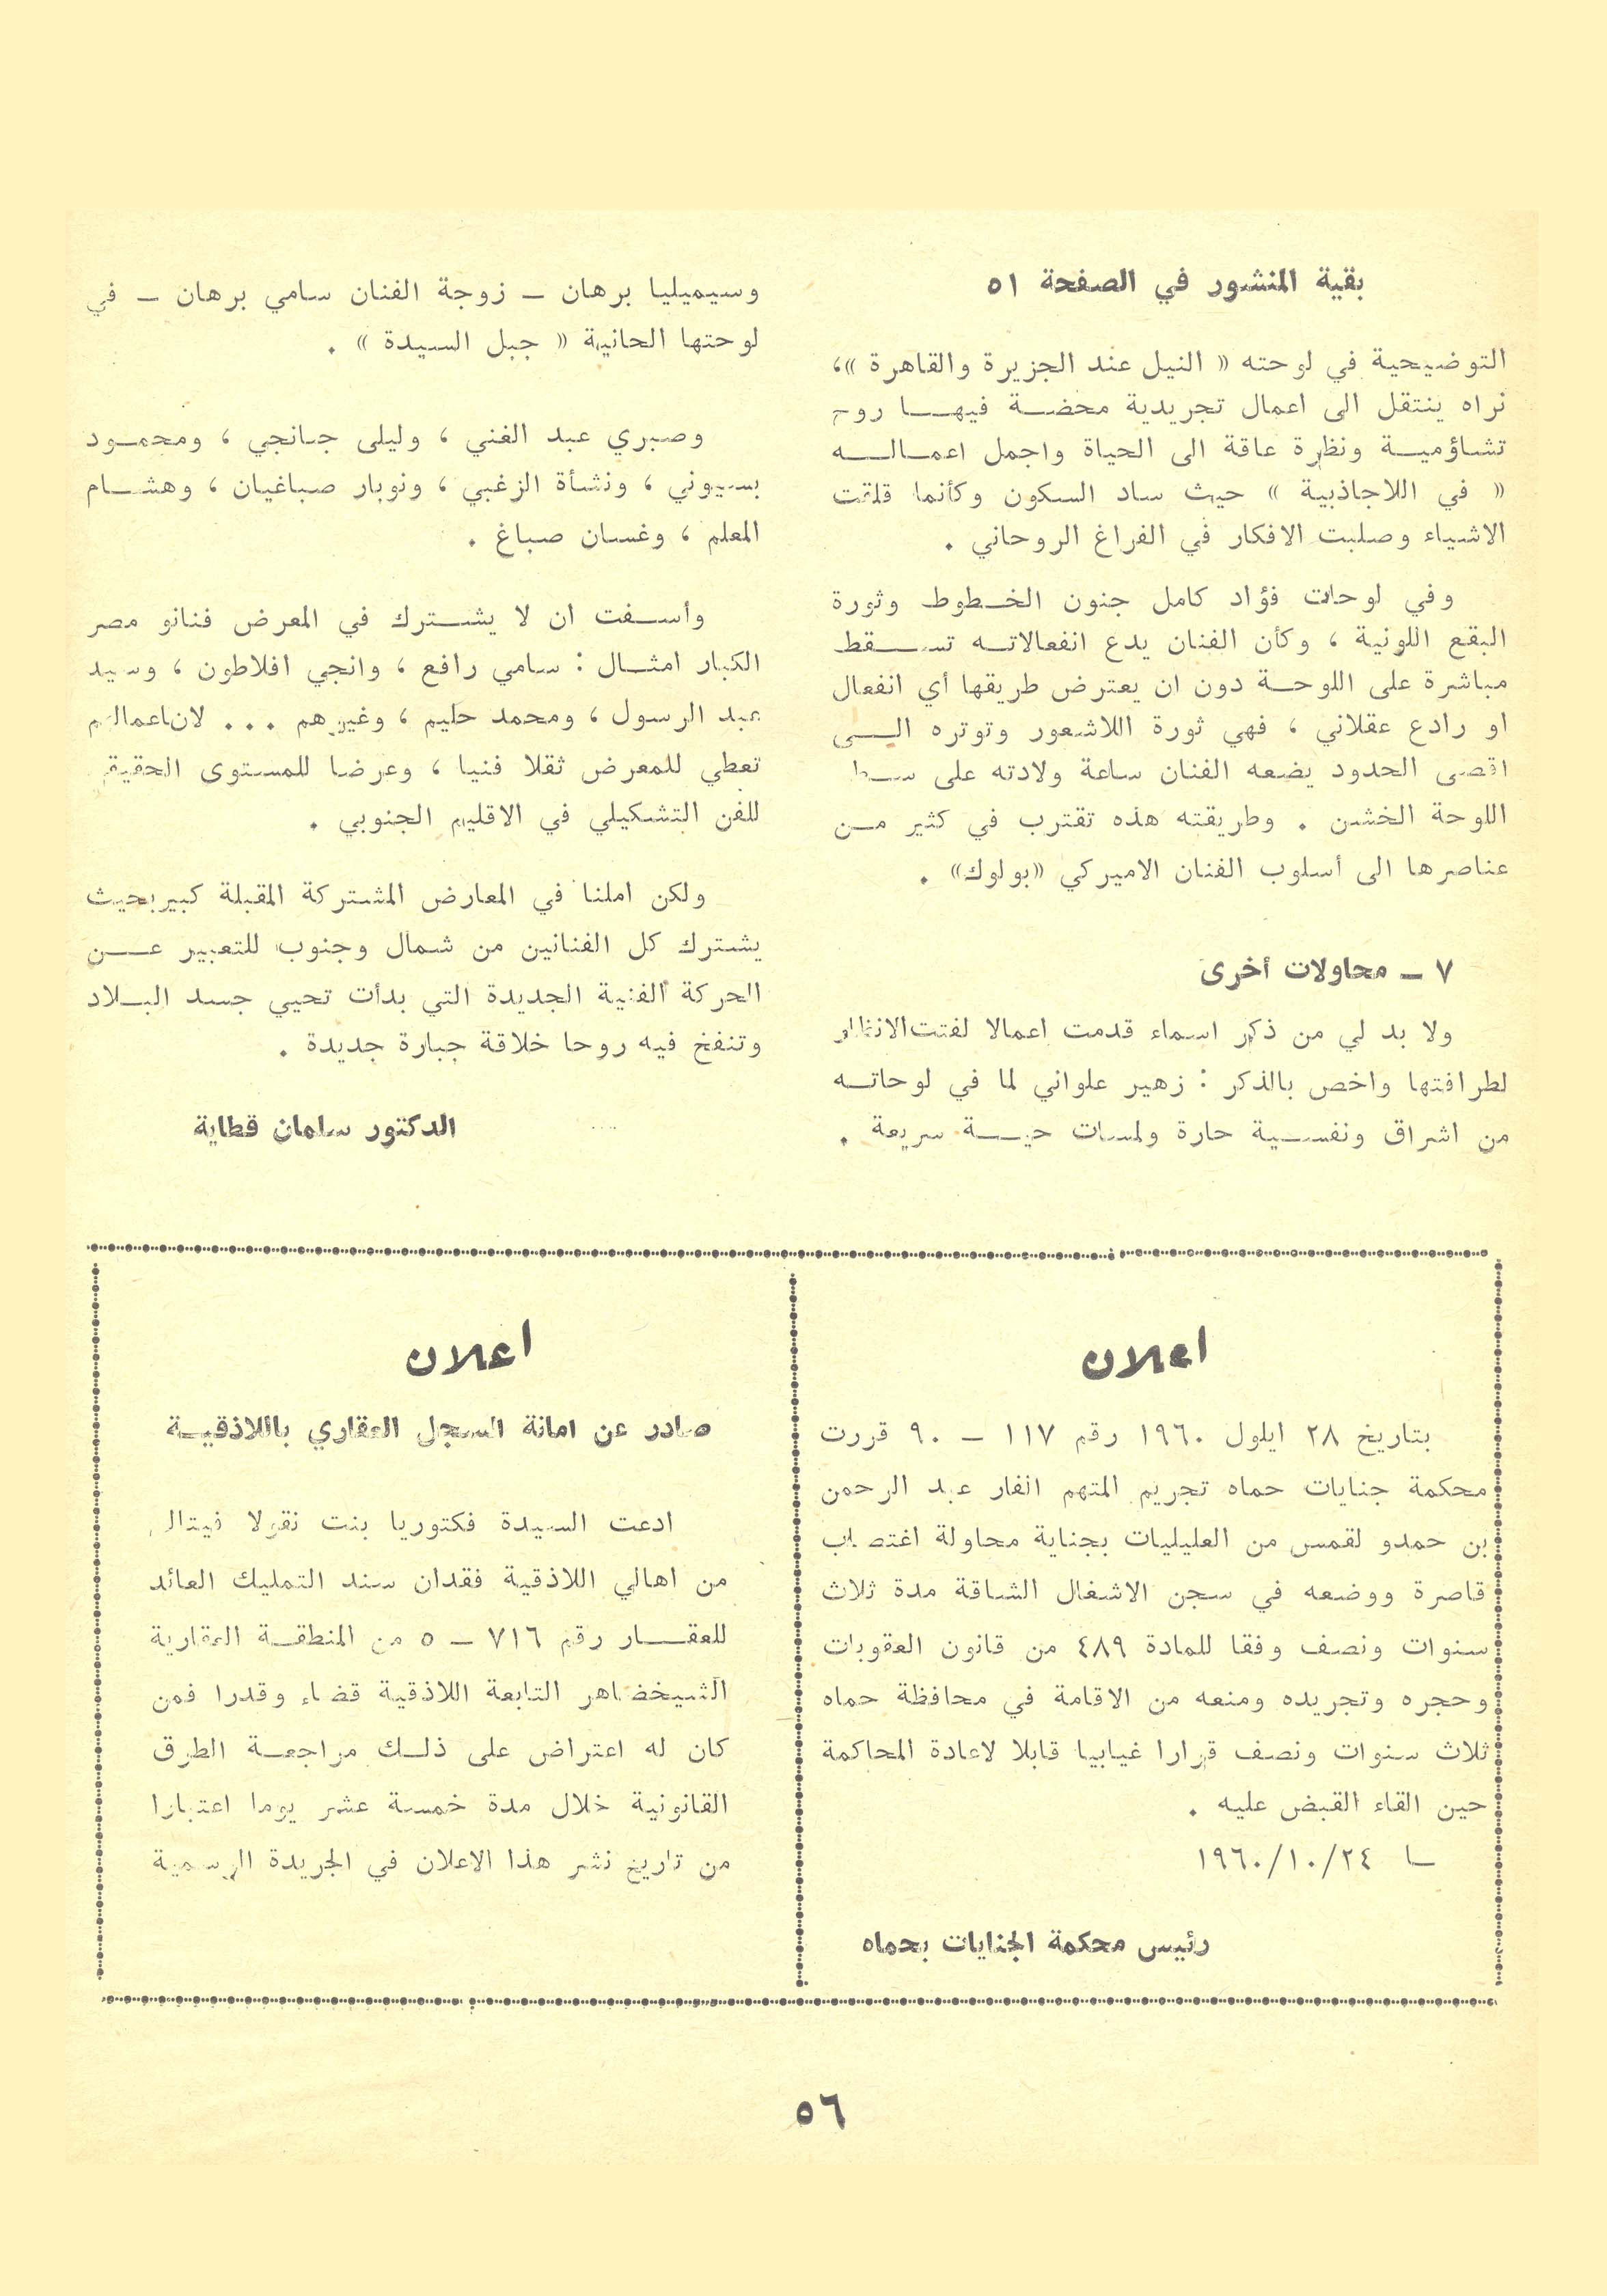 بقية المنشور في الصفحة ٥١
التوضيحية في لوحته « النيل عند الجزيرة والقاهرة »،
نراه ينتقل الى اعمال تجريدية محضة فيها روح
تشاؤمية ونظرة عاقة الى الحياة واجمل اعماله
« في اللاجاذبية » حيث ساد السكون وكأنما قلقت
الاشياء وصلبت الافكار في الفراغ الروحاني .
وفي لوحات فؤاد كامل جنون الخطوط وثورة
البقع اللونية ، وكأن الفنان يدع انفعالاته تسقط
مباشرة على اللوحة دون ان يعترض طريقها أي انفعال
او رادع عقلاني ، فهي ثورة اللاشعور وتوتره الى
اقصى الحدود يضعه الفنان ساعة ولادته على
اللوحة الخشن . وطريقته هذه تقترب في كثير من
عناصرها الى أسلوب الفنان الاميركي «بولوك» .
٧ – محاولات أخرى
ولا بد لي من ذكر اسماء قدمت اعمالا لفتت الانظار
لطرافتها واخص بالذكر : زهير علواني لما في لوحاته
من اشراق ونفسية حارة ولمسات حية سريعة .
وسيميليا برهان – زوجة الفنان سامي برهان – في
لوحتها الحانية « جبل السيدة » .
وصبري عبد الغني ، وليلى جانجي ، ومحمود
بسيوني ، ونشأة الزغبي ، ونوبار صباغيان ، وهشام
المعلم ، وغسان صباغ .
وأسفت ان لا يشترك في المعرض فنانو مصر
الكبار امثال : سامي رافع ، وانجي افلاطون ، وسيد
عبد الرسول ، ومحمد حليم ، وغيرهم ... لان اعمالهم
تعطي للمعرض ثقلا فنيا ، وعرضا للمستوى الحقيقي
للفن التشكيلي في الاقليم الجنوبي .
ولكن املنا في المعارض المشتركة المقبلة كبير بحيث
يشترك كل الفنانين من شمال وجنوب للتعبير عن
الحركة الفنية الجديدة التي بدأت تحيي جسد البلاد
وتنفخ فيه روحا خلاقة جبارة جديدة .
الدكتور سلمان قطاية
اعلان
بتاريخ ٢٨ ايلول ١٩٦٠ رقم ١١٧ – ٩٠ قررت
محكمة جنايات حماه تجريم المتهم الفار عبد الرحمن
بن حمدو لقمس من العليليات بجناية محاولة اغتصاب
قاصرة ووضعه في سجن الاشغال الشاقة مدة ثلاث
سنوات ونصف وفقا للمادة ٤٨٩ من قانون العقوبات
وحجره وتجريده ومنعه من الاقامة في محافظة حماه
ثلاث سنوات ونصف قرارا غيابيا قابلا لاعادة المحاكمة
حين القاء القبض عليه .
١٩٦٠/١٠/٢٤
رئيس محكمة الجنايات بحماه
اعلان
صادر عن امانة السجل العقاري باللاذقية
ادعت السيدة فكتوريا بنت نقولا
من اهالي اللاذقية فقدان سند التمليك العائد
للعقار رقم ٧١٦ – ٥ من المنطقة العقارية
الشيخضاهر التابعة اللاذقية قضاء وقدرا فمن
كان له اعتراض على ذلك مراجعة الطرق
القانونية خلال مدة خمسة عشر يوما اعتبارا
من تاريخ نشر هذا الاعلان في الجريدة الرسمية
٥٦